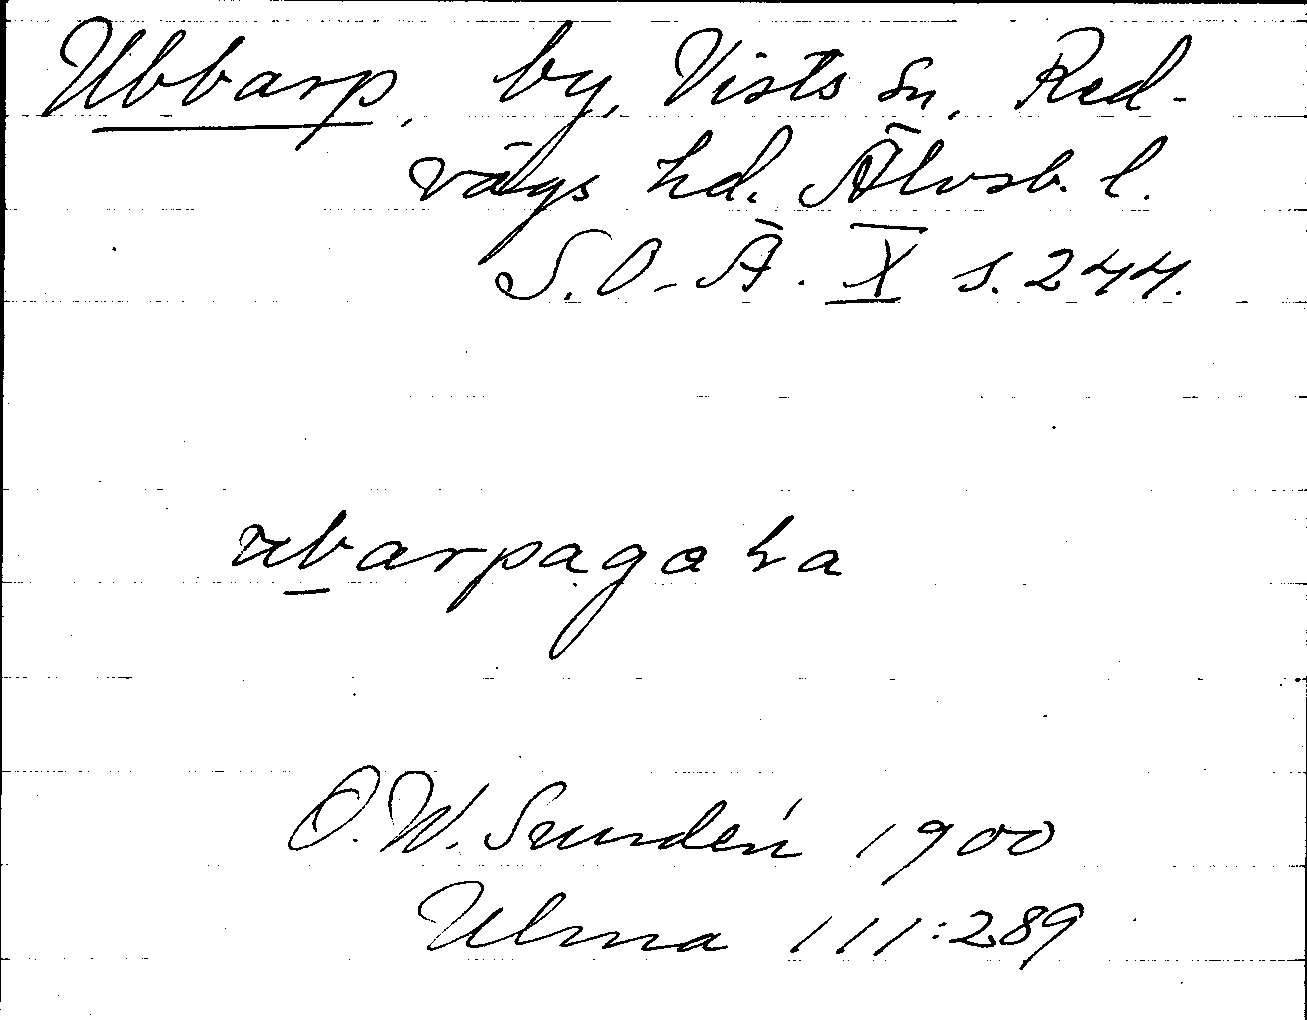 Ubbarp, by, Vists sn, Red-
vägs hd. Älvsb. l.
S.O.Ä. X s. 244.
ubarpagata
O.W. Sundén 1900
Ulma 111:289